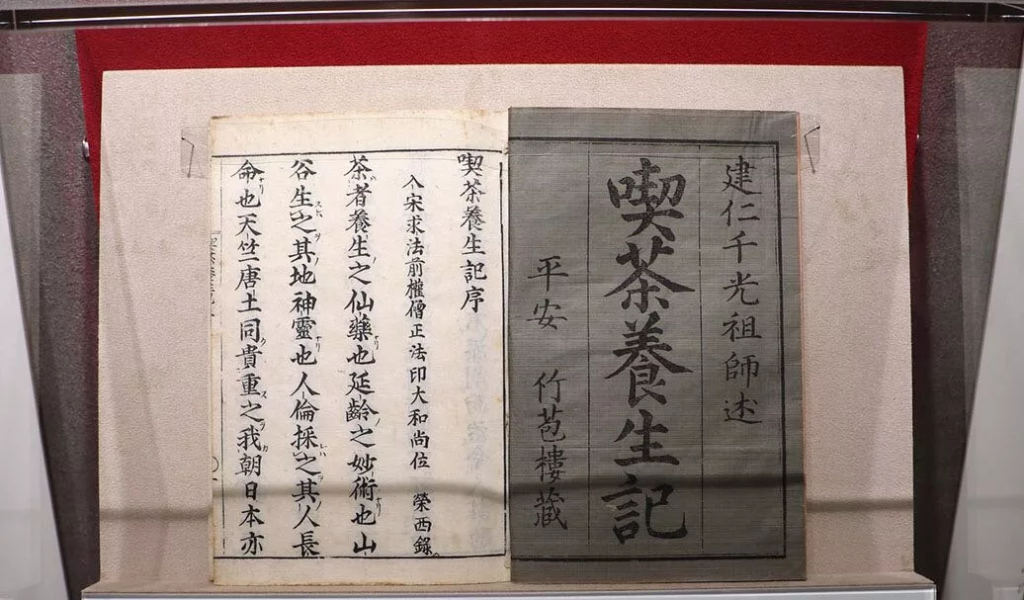 建仁千光祖師述
喫茶養生記
平安 竹苞樓藏
喫茶養生記序
入宋求法前權僧正法印大和尚位 榮西錄。
茶者養生之仙藥也延齡之妙術也山
谷生之其地神靈也人倫採之其人長
命也天竺唐土同貴重之我朝日本亦